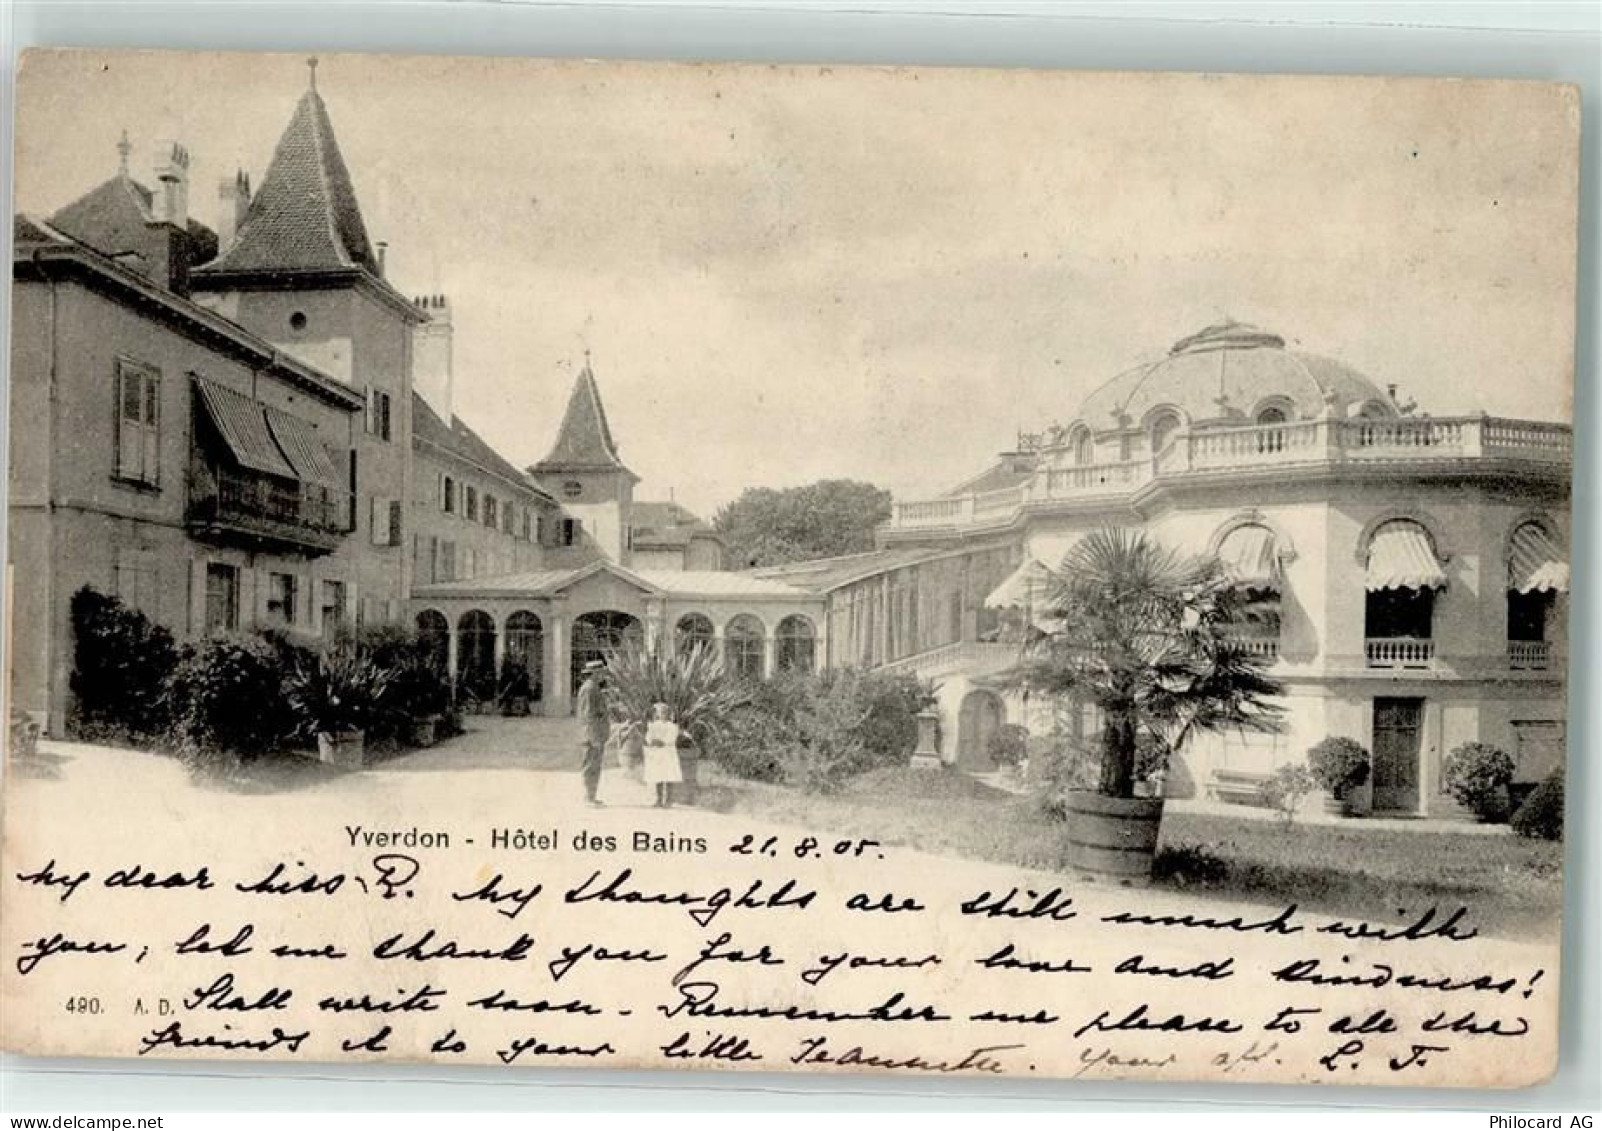 Yverdon - Hôtel des Bains 21. 8. 05.
My dear Miss R. My thoughts are still much with
you; let me thank you for your love and kindness!
490. A. D. Shall write soon. Remember me please to all the
friends & to your little Jeannette. Your aff. L. F.
Philocard AG